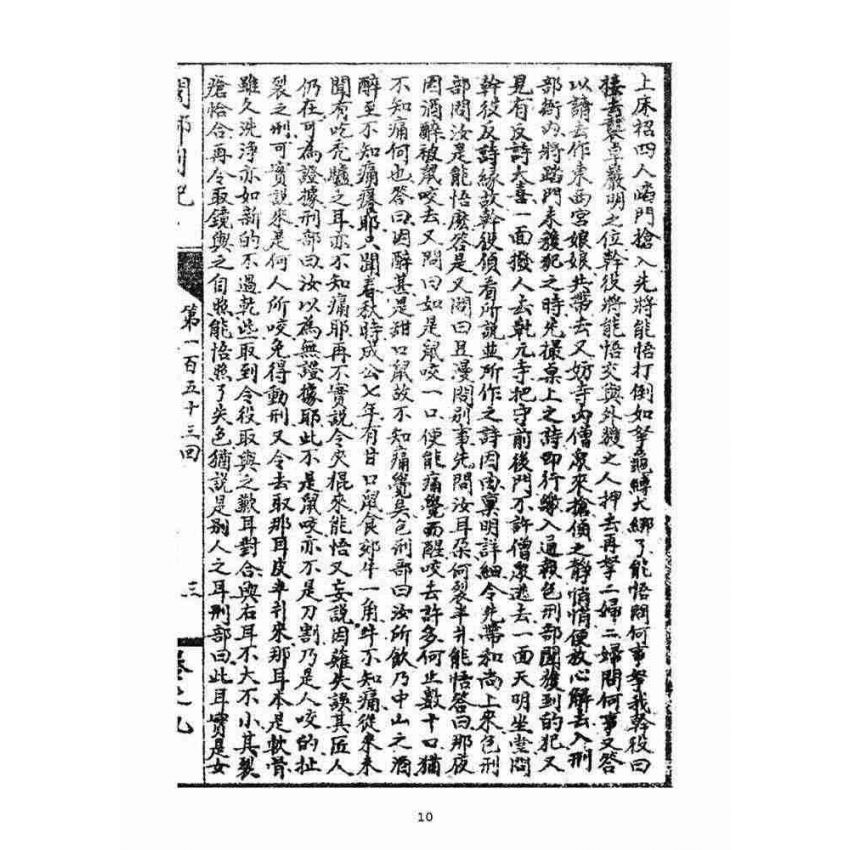 上床招四人踏門搶入先將能悟打倒如拏龜縛大綁了能悟問何事拏我幹役曰
接去襲卓嚴明之位幹役將能悟交與外護之人押去再拏二婦二婦問何事又答
以請去作東西宮娘娘共帶去又妨寺內僧眾來搶偵之靜悄悄便放心解去入刑
部衙內將踏門未獲犯之時先撮桌上之詩即行繳入通報色刑部聞獲到的犯又
見有反詩大喜一面撥人去乾元寺把守前後門不許僧眾逃去一面天明坐堂問
幹役反詩緣故幹役偵看所說並所作之詩因由稟明詳細令先帶和尚上來色刑
部問汝是能悟麼答是又問曰且漫問別事先問汝耳朶何裂半爿能悟答曰那夜
因酒醉被鼠咬去又問曰如是鼠咬一口便能痛覺而醒咬去許多何止數十口猶
不知痛何也答曰因醉甚是甜口鼠故不知痛覺矣色刑部曰汝所飲乃中山之酒
醉至不知痛癢耶只聞春秋時成公七年有甘口鼠食郊牛一角牛不知痛從來未
聞有吃禿驢之耳亦不知痛耶再不實說令夾棍來能悟又妄說因雞失誤其匠人
仍在可為證據刑部曰汝以為無證據耶此不是鼠咬亦不是刀割乃是人咬的扯
裂之刑可實說來是何人所咬免得動刑又令去取那耳皮半爿來那耳本是軟骨
雖久洗淨亦如新的不過乾些取到令役取與之歎耳對合與右耳不大不小其裂
瘡恰合再令取鏡與之自照能悟照了失色猶說是別人之耳刑部曰此耳實是女
閩都別記
第一百五十三回
三
卷之九
10